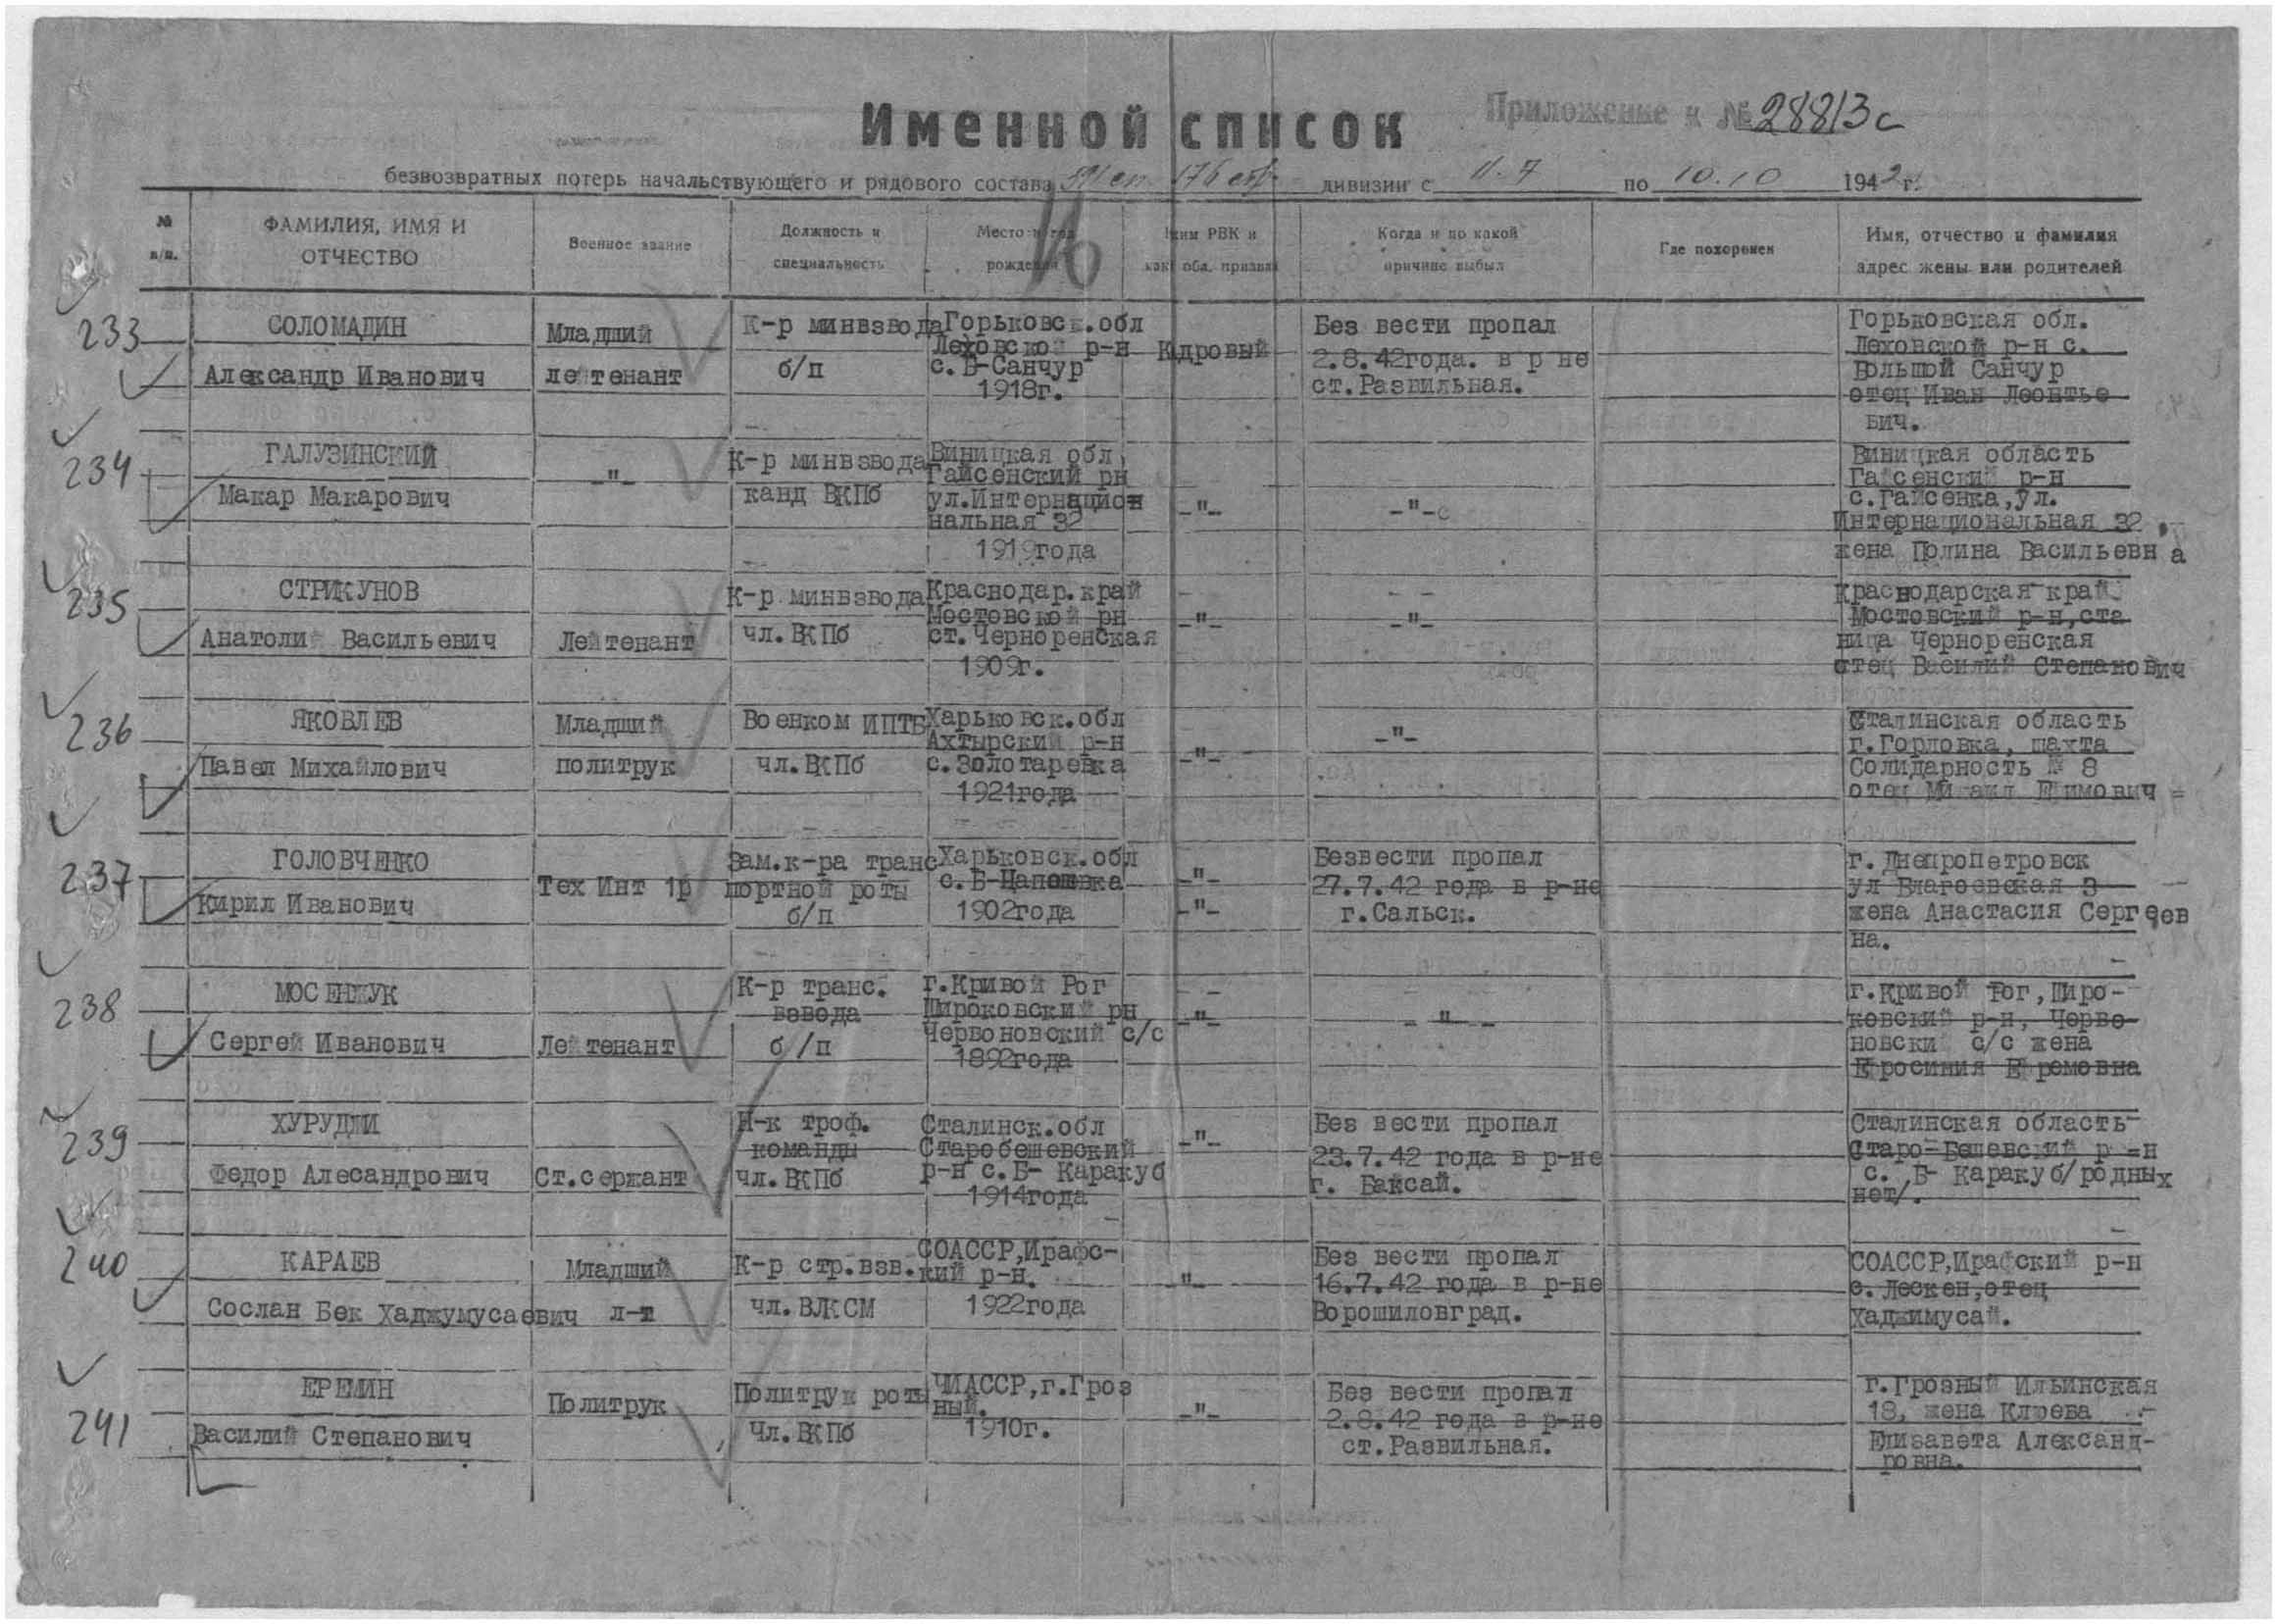 Именной список
Приложение к № 28813с
безвозвратных потерь начальствующего и рядового состава 176 дивизии с 11.7 по 10.10 1942 г.
16
№ п/п.
ФАМИЛИЯ, ИМЯ И ОТЧЕСТВО
Военное звание
Должность и специальность
Место и год рождения
Каким РВК и как. обл. призван
Когда и по какой причине выбыл
Где похоронен
Имя, отчество и фамилия адрес жены или родителей
233
СОЛОМАДИН
Александр Иванович
Младший
лейтенант
К-р минвзвода
б/п
Горьковск.обл
Леховской р-н
с.Б-Санчур
1918г.
Кадровый
Без вести пропал
2.8.42года. в р не
ст.Развильная.
Горьковская обл.
Леховской р-н с.
Большой Санчур
отец Иван Леонтье
вич.
234
ГАЛУЗИНСКИЙ
Макар Макарович
-"-
К-р минвзвода
канд ВКПб
Виницкая обл,
Гайсенский рн
ул.Интернацион
нальная 32
1919года
-"-
-"-с
Виницкая область
Гайсенский р-н
с.Гайсенка,ул.
Интернациональная 32,
жена Полина Васильевна
235
СТРИКУНОВ
Анатолий Васильевич
Лейтенант
К-р минвзвода
чл.ВКПб
Краснодар.край
Мостовской рн
ст.Черноренская
1909г.
-"-
-"-
Краснодарская край
Мостовский р-н,ста
ница Черноренская
отец Василий Степанович
236
ЯКОВЛЕВ
Павел Михайлович
Младший
политрук
Военком ИПТБ
чл.ВКПб
Харьковск.обл
Ахтырский р-н
с.Золотаревка
1921года
-"-
-"-
Сталинская область
г.Горловка, шахта
Солидарность № 8
отец Михаил Ефимович
237
ГОЛОВЧЕНКО
Кирил Иванович
Тех Инт 1р
Зам.к-ра транс
портной роты
б/п
Харьковск.обл
с.Б-
1902года
-"-
-"-
Безвести пропал
27.7.42 года в р-не
г.Сальск.
г. Днепропетровск
ул Благоевская 3
жена Анастасия Сергеев
на.
238
МОСЕНЖУК
Сергей Иванович
Лейтенант
К-р транс.
взвода
б/п
г.Кривой Рог
Широковский рн
Червоновский с/с
1892года
-"-
- " -
г.Кривой Рог,Широ-
ковский р-н, Черво-
новский с/с жена
Ефросиния Ефремовна
239
ХУРУДЖИ
Федор Алесандрович
Ст.сержант
Н-к троф.
команды
чл.ВКПб
Сталинск.обл
Старобешевский
р-н с.Б- Каракуб
1914года
-"-
Без вести пропал
23.7.42 года в р-не
г. Баксай.
Сталинская область
Старо-Бешевский р-н
с. Б- Каракуб/родных
нет/.
240
КАРАЕВ
Сослан Бек Хаджумусаевич
Младший
л-т
К-р стр.взв.
чл.ВЛКСМ
СОАССР,Ирафс-
кий р-н.
1922года
-"-
Без вести пропал
16.7.42 года в р-не
Ворошиловград.
СОАССР,Ирафский р-н
с. Лескен,отец
Хаджимусай.
241
ЕРЕМИН
Василий Степанович
Политрук
Политрук роты
Чл.ВКПб
ЧИАССР,г.Гроз
ный.
1910г.
-"-
Без вести пропал
2.8.42 года в р-не
ст.Развильная.
г.Грозный Ильинская
18, жена Клюева
Елизавета Александ-
ровна.